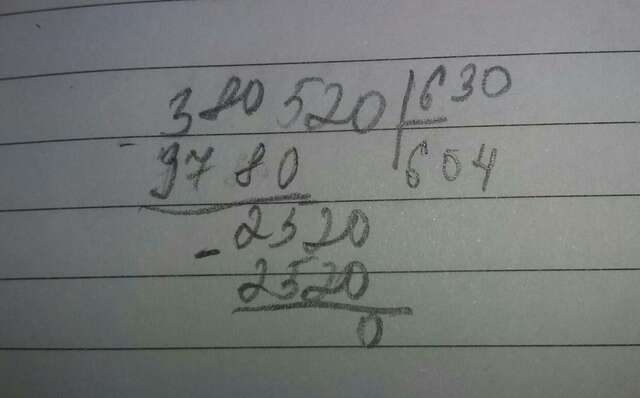 380520 630
- 3780 604
- 2520
2520
0